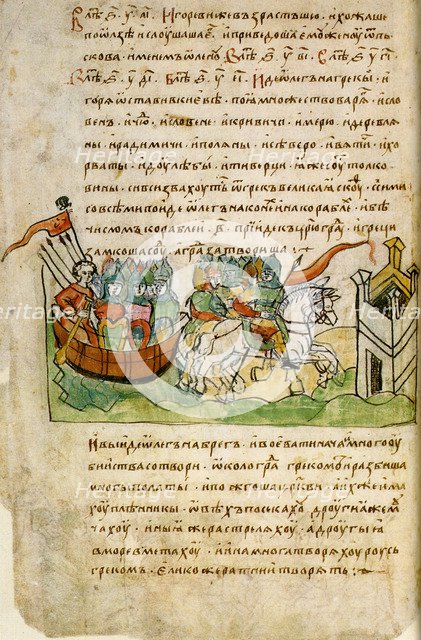 В лѣт҃. ҂ѕ҃. у҃. аі҃. Игоревижевъзрастъшю. ихожаше
поѡлзѣ ислоушашаег҃. иприведошаемоуженоуѿпь
скова. именемъѡленоу. Влѣт҃. ҂ѕ҃. у҃. ві҃. Влѣт҃. ҂ѕ҃. у҃. гі҃.
Влѣт҃. ҂ѕ҃. у҃. ді҃. Влѣт҃. ҂ѕ҃. у҃. еі҃. Идеѡлегънагрекы. и
игоряѡставивкиевѣ. поѧмножествоварѧг҃. исло
венъ. ичюд҃. исловене. икривичи. имерю. идеревлѧ
ны. ирадимичи. иполѧны. исѣверо. ивѧтичи. ихо
рваты. идоулѣбы. итиверци. ꙗжесоутьтолко
вины. сивсизвахоутьс҃ ѿгрекъвеликаꙗскоуф҃. исъсими
совсѣмипоидеѡлегънаконехинакораблех҃. ибѣ
числомъкораблеи. ҂в҃. приидекъцр҃юград҃у. игреци
замкошасоуд҃. аградзатвориша
ивыидеѡлегънабрегъ. ивоеватинача. имногооу
биствасотвори. ѡколоград҃а грекомъ. иразбиша
многыполаты. ипожгошацр҃кви. аихжеимах
оуплѣнникы. ѡвѣхъпосѣкахоу. дроугиꙗжемоу
чахоу. иныꙗжерастрелѧхоу. адроугыꙗ
вморевметахоу. иинамногатворѧхоуроусь
грекомъ. еликожератниитворѧть